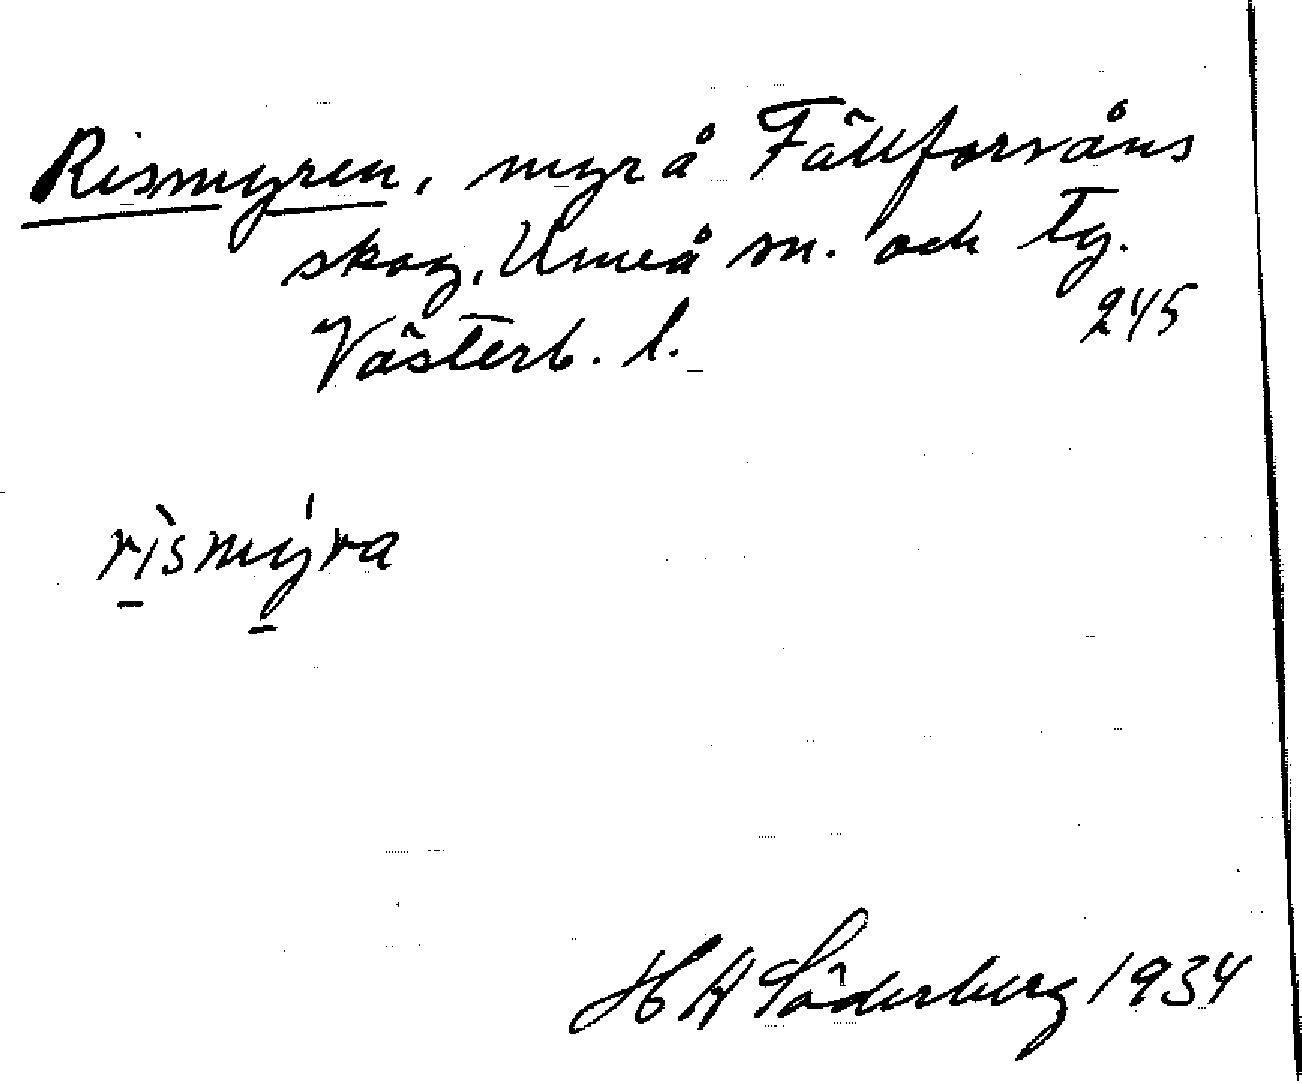 Rismyren, myr å Fällforsåns
skog, Umeå sn. och tg.
Västerb. l. 245
rìsmýra
H W Söderberg 1934